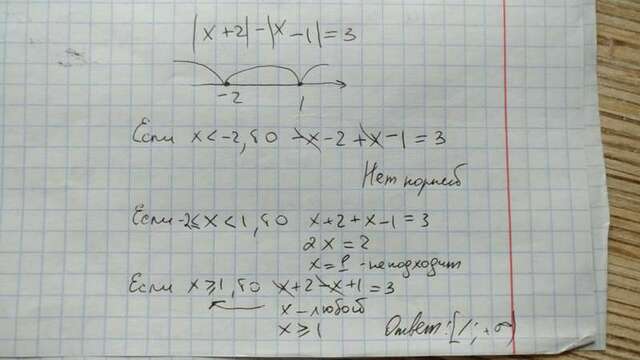 |x+2|-|x-1|=3
-2 1
Если x<-2, то -x-2+x-1=3
Нет корней
Если -2≤x<1, то x+2+x-1=3
2x=2
x=1 -не подходит
Если x≥1, то x+2-x+1=3
x-любой
x≥1
Ответ: [1; +∞)